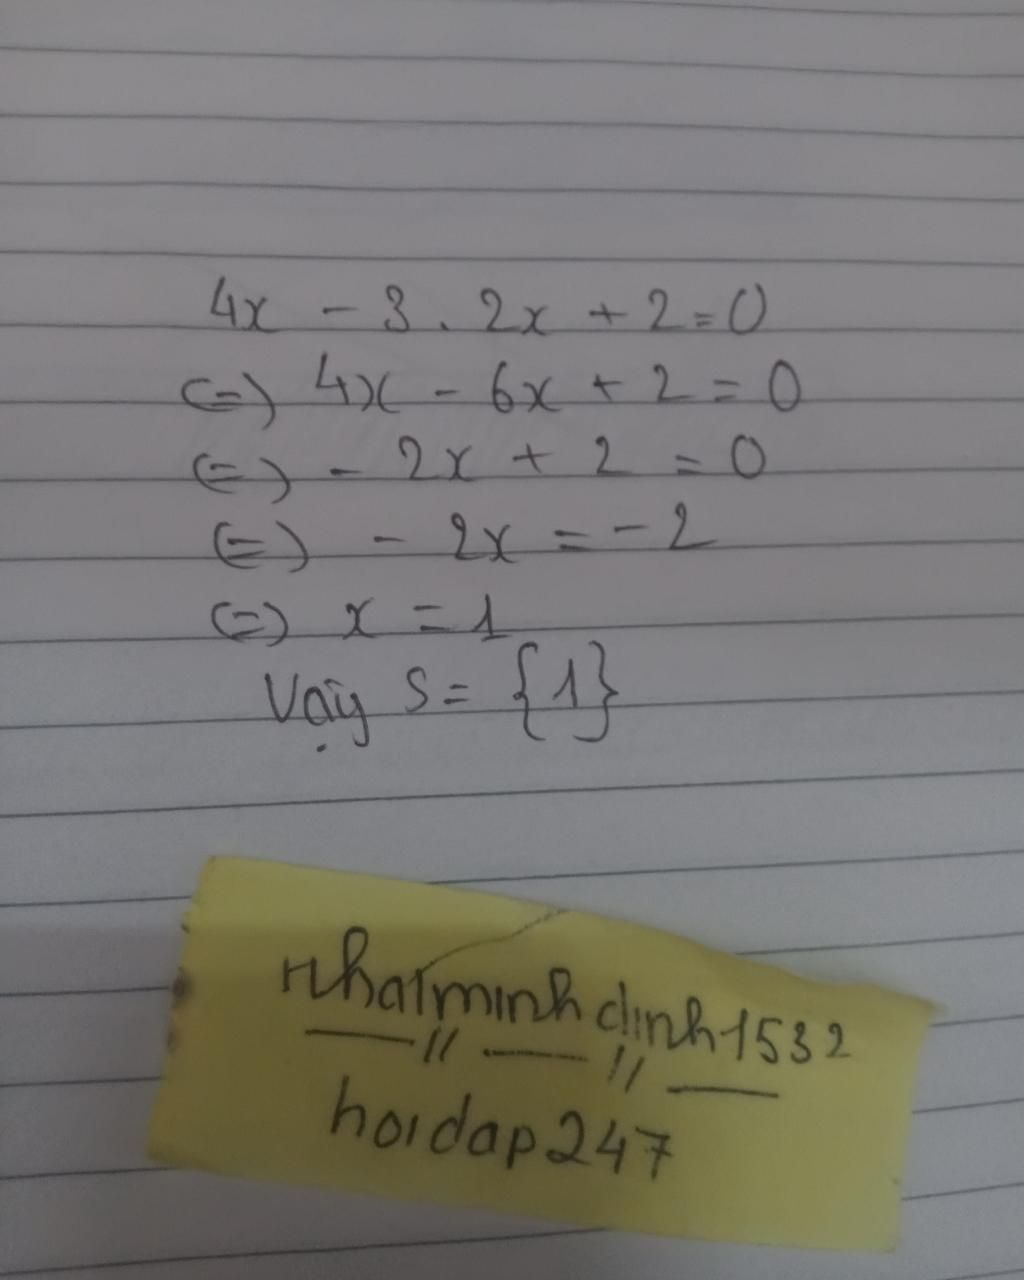 4x - 3 . 2x + 2 = 0
(=) 4x - 6x + 2 = 0
(=) - 2x + 2 = 0
(=) - 2x = - 2
(=) x = 1
Vậy S = {1}
nhatminhdinh1532
hoidap247